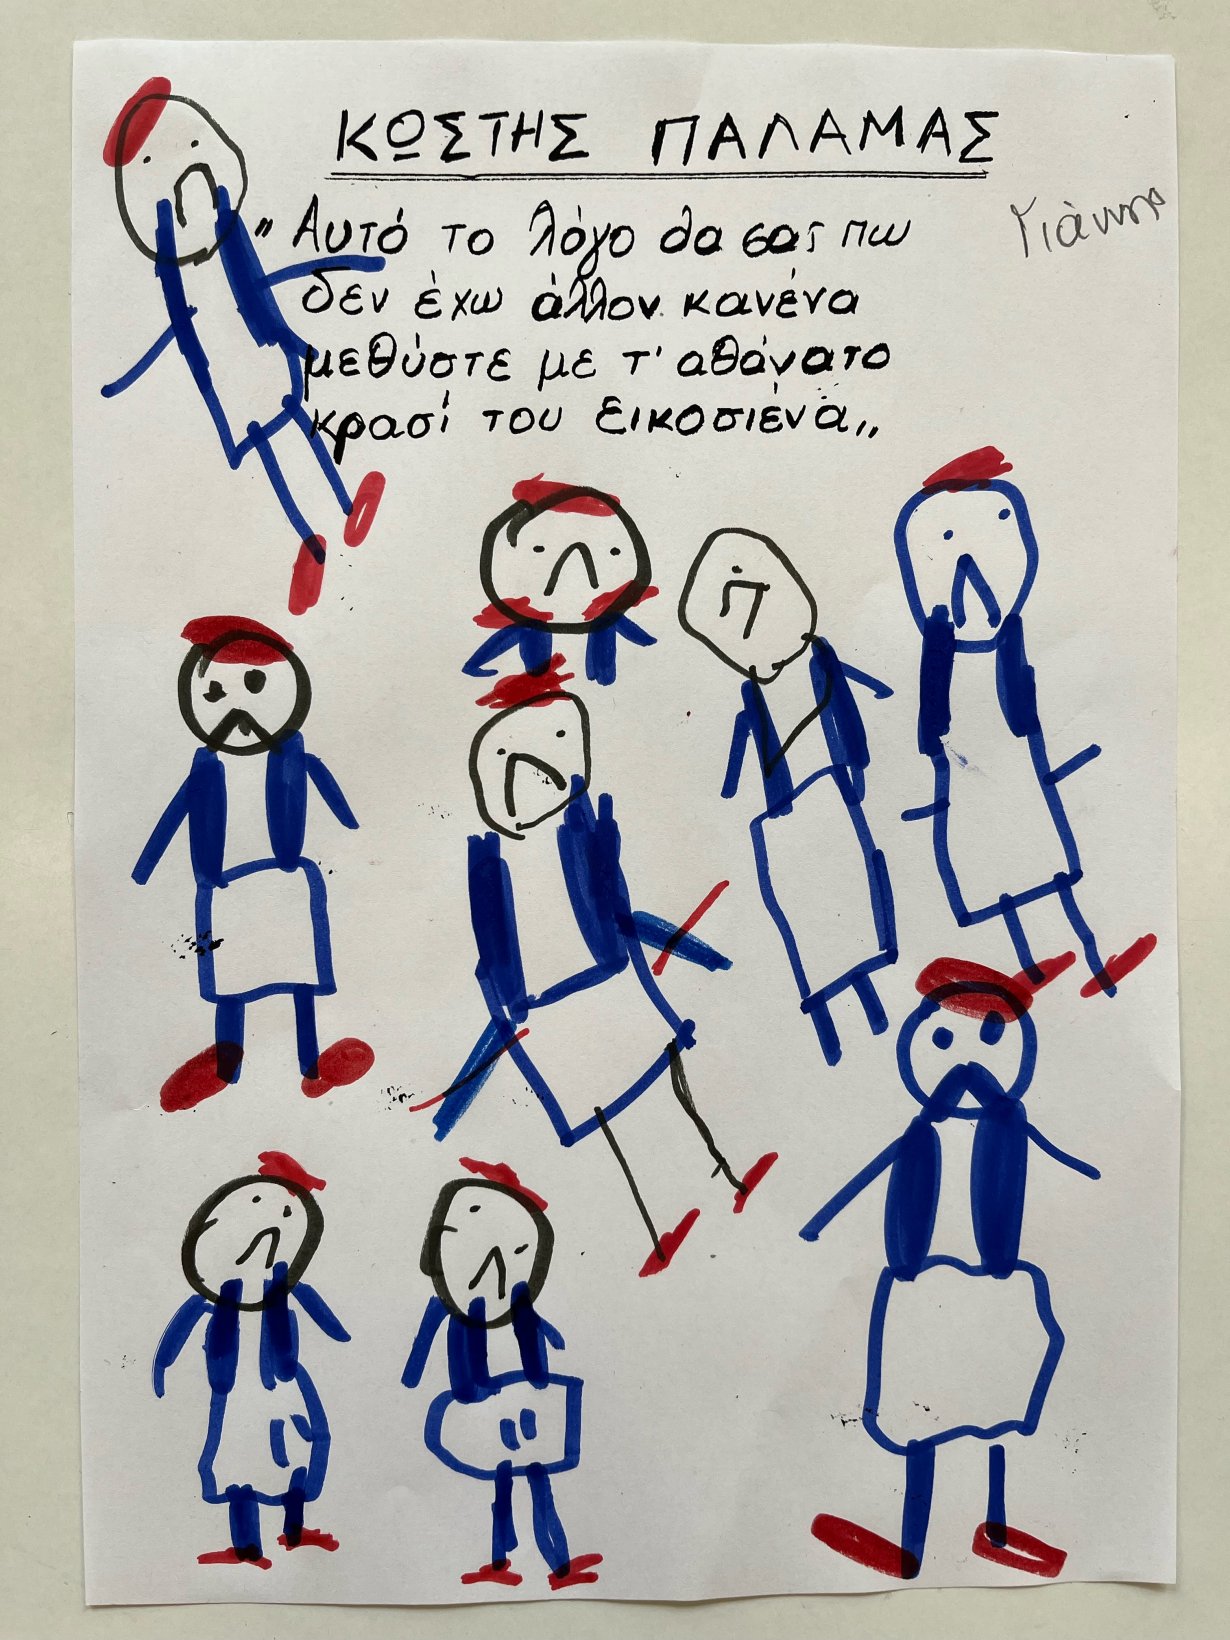 ΚΩΣΤΗΣ ΠΑΛΑΜΑΣ
"Αυτό το λόγο θα σας πω
δεν έχω άλλον κανένα
μεθύστε με τ' αθάνατο
κρασί του εικοσιένα,,
Γιάννης